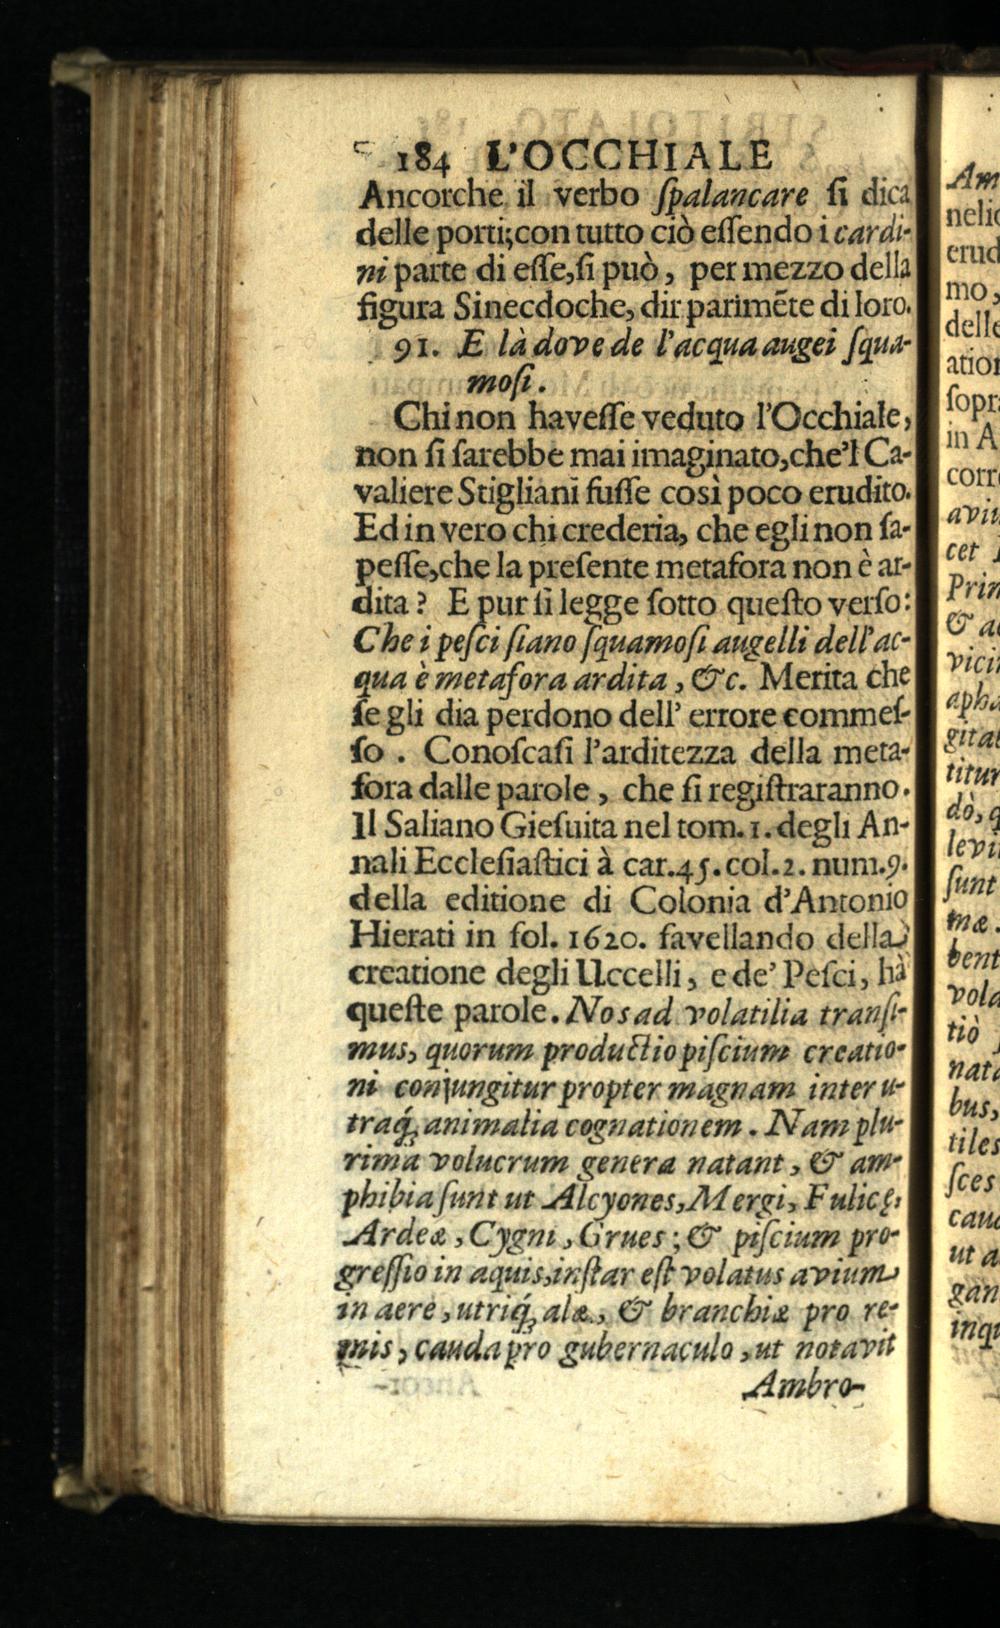 184 L'OCCHIALE
Ancorche il verbo ſpalancare ſi dica
delle porti; con tutto ciò eſſendo i cardi-
ni parte di eſſe, ſi può, per mezzo della
figura Sinecdoche, dir parimẽte di loro.
91. E là dove de l'acqua augei ſqua-
moſi.
Chi non haveſſe veduto l'Occhiale,
non ſi ſarebbe mai imaginato, che'l Ca-
valiere Stigliani fuſſe così poco erudito.
Ed in vero chi crederia, che egli non ſa-
peſſe, che la preſente metafora non è ar-
dita? E pur ſi legge ſotto queſto verſo:
Che i peſci ſiano ſquamoſi augelli dell'ac-
qua è metafora ardita, &c. Merita che
ſe gli dia perdono dell' errore commeſ-
ſo. Conoſcaſi l'arditezza della meta-
fora dalle parole, che ſi regiſtraranno.
Il Saliano Gieſuita nel tom. 1. degli An-
nali Eccleſiaſtici à car. 45. col. 2. num. 9.
della editione di Colonia d'Antonio
Hierati in fol. 1620. favellando della
creatione degli Uccelli, e de' Peſci, hà
queſte parole. Nos ad volatilia tranſi-
mus, quorum productio piſcium creatio-
ni conjungitur propter magnam inter u-
traq́; animalia cognationem. Nam plu-
rima volucrum genera natant, & am-
phibia ſunt ut Alcyones, Mergi, Fulicę,
Ardeæ, Cygni, Grues; & piſcium pro-
greſſio in aquis, inſtar eſt volatus avium
in aere, utriq́; alæ, & branchiæ pro re-
mis, cauda pro gubernaculo, ut notavit
Ambro-
Am
erud
mo,
delle
ation
ſopra
in A
corre
aviu
cet
Prin
& a
vicin
apha
gital
titur
dò, q
levi
ſunt
mæ.
bent
vola
tiò
nata
bus,
tiles
ſces
cau
ut a
gan
inqu